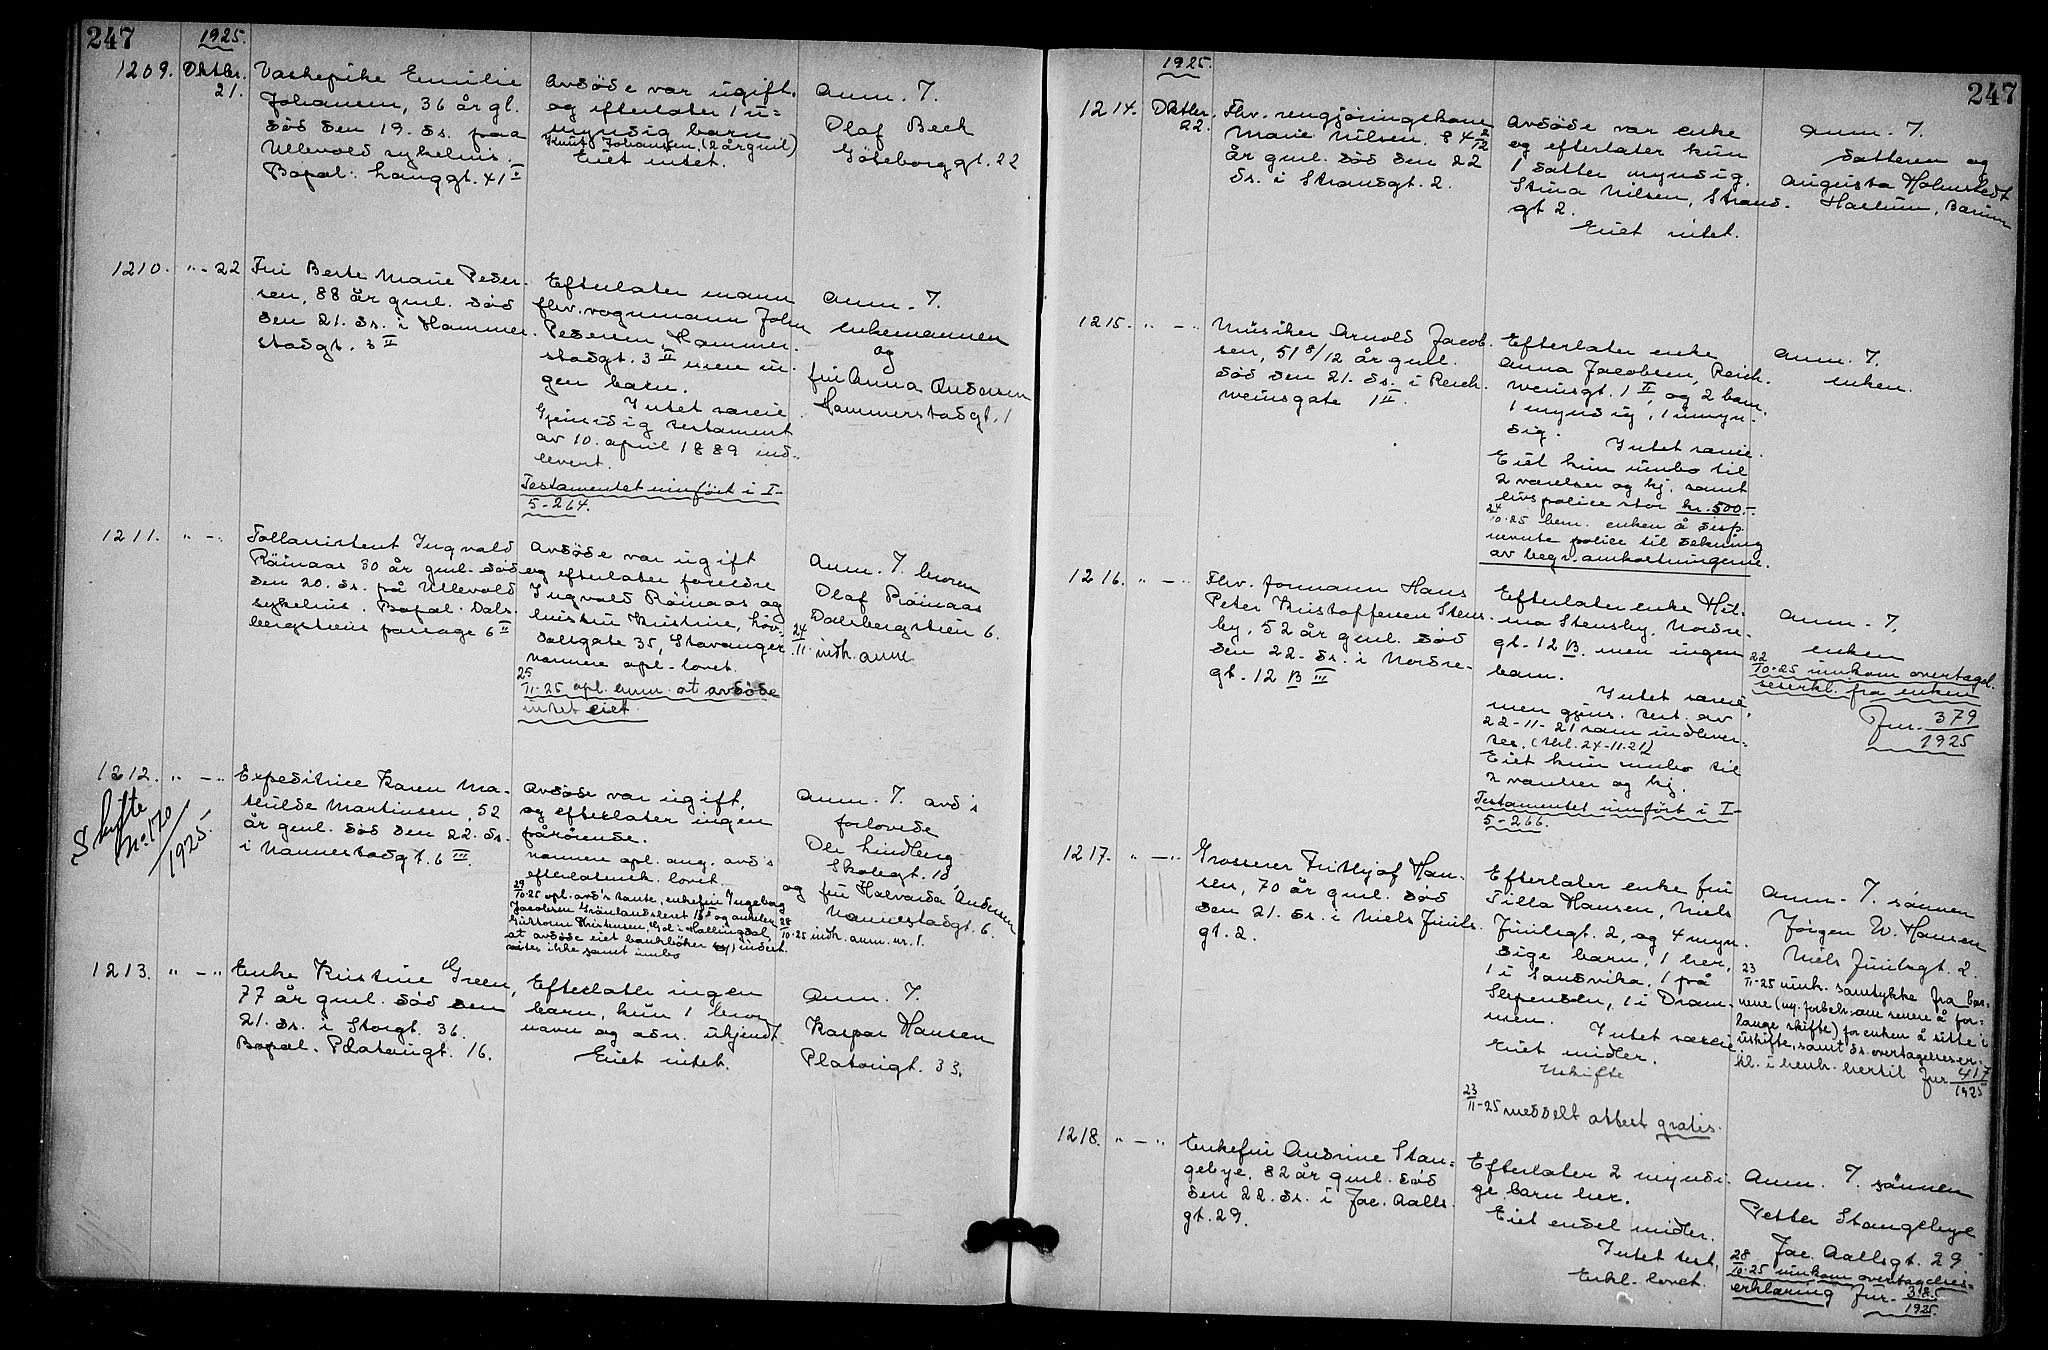 247
1925.
1209. Oktbr. 21.
Vaskepike Emilie
Johansen, 36 år gl.
död den 19. ds. paa
Ullevold sykehus.
Bopæl: Langgt. 41 II
Avdöde var ugift.
og efterlater 1 u=
myndig barn
Knut Johansen, (2 år gml)
Eiet intet.
Anm. 7.
Olaf Beck
Göteborggt. 22
1210. " - 22
Fru Berte Marie Peder-
sen, 88 år gml. död
den 21. ds. i Hammer-
stadgt. 3 II
Efterlater mann
fhv. vognmann John
Pedersen, Hammer-
stadgt. 3 II men in-
gen barn.
Intet særeie.
Gjensidig testament
av 10. april 1889 ind-
levert.
Testamentet innfört i I-
5-264.
Anm. 7.
enkemannen
og
fru Anna Andersen
Hammerstadgt. 1
1211. " - "
Tollassistent Ingvald
Röinaas 30 år gml. död
den 20. ds. på Ullevold
sykehus. Bopæl. Dals-
bergstiens passage 6 II
Avdöde var ugift
og efterlater foreldre
Ingvald Röinaas og
hustru Kristine, Höv-
dalsgate 35, Stavanger
nærmere opl. lovet.
25/11-25 opl. anm. at avdöde
intet eiet.
Anm. 7. broren
Olaf Röinaas
Dalsbergstien 6.
24/11. indk. anm.
1212. " - "
Skifte
No. 170/1925.
Expeditrice Karen Ma-
thilde Martinsen, 52
år gml. död den 22. ds.
i Nannestadgt. 6 III.
Avdöde var ugift,
og efterlater ingen
pårörende.
nærmere opl. ang. avd's
efterladensk. lovet.
29/10-25 opl. avd's tante, enkefru Ingeborg
Jacobsen Grönlandsleret
at avdöde eiet bankböker
vites ikke samt innbo
Anm. 7. avd's
forlovede
Ole Lindberg
Skolegt. 10,
og fru Halvarda Andersen
Nannestadgt. 6.
28/10-25 indk. anm. nr. 1.
1213. " - "
Enke Kristine Green,
77 år gml. död den
21. ds. i Storgt. 36.
Bopæl. Platousgt. 16.
Efterlater ingen
barn, kun 1 bror
navn og adr. ukjendt.
Eiet intet.
Anm. 7.
Kaspar Hansen
Platousgt. 33.
1925.
247
1214. Oktbr. 22.
Fhv. rengjöringskone
Marie Nilsen, 84 2/12
år gml. död den 22
ds. i Strandgt. 2.
Avdöde var enke
og efterlater kun
1 datter myndig.
Stina Nilsen, Strand-
gt 2.
Eiet intet.
Anm. 7.
datteren og
Augusta Holmstedt
Haslum, Bærum
1215. " - "
Musiker Arnold Jacob-
sen, 51 8/12 år gml.
död den 21. ds. i Reich-
weinsgate 1 II.
Efterlater enke
Anna Jacobsen, Reich-
weinsgt. 1 II og 2 barn,
1 myndig, 1 umyn-
dig.
Intet særeie.
Eiet kun innbo til
2 værelser og kj. samt
livspolice stor kr. 500.-
24/10-25 bem. enken å disp.
nevnte police til dekning
av begr. omkostningene.
Anm. 7.
enken.
1216. " - "
Fhv. formann Hans
Peter Kristoffersen Stens-
by, 52 år gml. död
den 22. ds. i Nordre-
gt. 12 B III
Efterlater enke Hil-
ma Stensby, Nordre-
gt. 12 B. men ingen
barn.
Intet særeie,
men gjens. test. av
22-11-21 som indlever-
tes. (tkl. 24-11-21)
Eiet kun innbo til
2 værelser og kj.
Testamentet innfört i I-
5-266.
Anm. 7.
enken
22/10-25 innkom overtagel-
seserkl. fra enken
Jnr. 379/1925
1217. " - "
Grosserer Frithjof Han-
sen, 70 år gml. död
den 21. ds. i Niels Juuls-
gt. 2.
Efterlater enke fru
Tilla Hansen, Niels
Juulsgt. 2, og 4 myn-
dige barn, 1 her,
1 i Sandvika, 1 på
Slependen, 1 i Dram-
men.
Intet særeie
Eiet midler.
Uskifte
23/11-25 meddelt attest gratis.
Anm. 7. sönnen
Jörgen W. Hansen
Niels Juulsgt. 2.
23/11-25 innk. samtykke fra bar-
nene (m. forbeh. om senere å for-
lange skifte) for enken å sitte i
uskifte, samt ds. overtagelseser-
kl. i henh. hertil Jnr 417/1925
1218. " - "
Enkefru Andrine Stan-
gebye, 82 år gml. död
den 22. ds. i Jac. Aalls-
gt. 29.
Efterlater 2 myndi-
ge barn her.
Eiet endel midler.
Intet test.
Erkl. lovet.
Anm. 7. sönnen
Petter Stangebye
Jac. Aallsgt. 29.
28/10-25 innkom overtagelses-
erklæring Jnr. 385/1925.